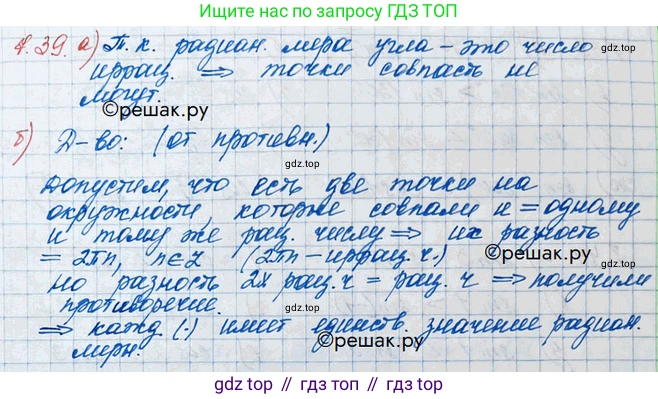 Ищите нас по запросу ГДЗ ТОП
4.39. а) Т.к. радиан. мера угла – это число
иррац. ⇒ точки совпасть не
могут.
©решак.ру
gdz.top
б) Д-во: (от противн.)
gdz.top
Допустим, что есть две точки на
окружности, которые совпали и = одному
и тому же рац. числу ⇒ их разность
= 2πn, n∈Z (2πn – иррац. ч.)
©решак.ру
но разность 2х рац. ч = рац. ч ⇒ получили
противоречие.
gdz.top
⇒ кажд. (·) имеет единств. значение радиан.
мерн.
©решак.ру
gdz top // гдз топ // gdz top